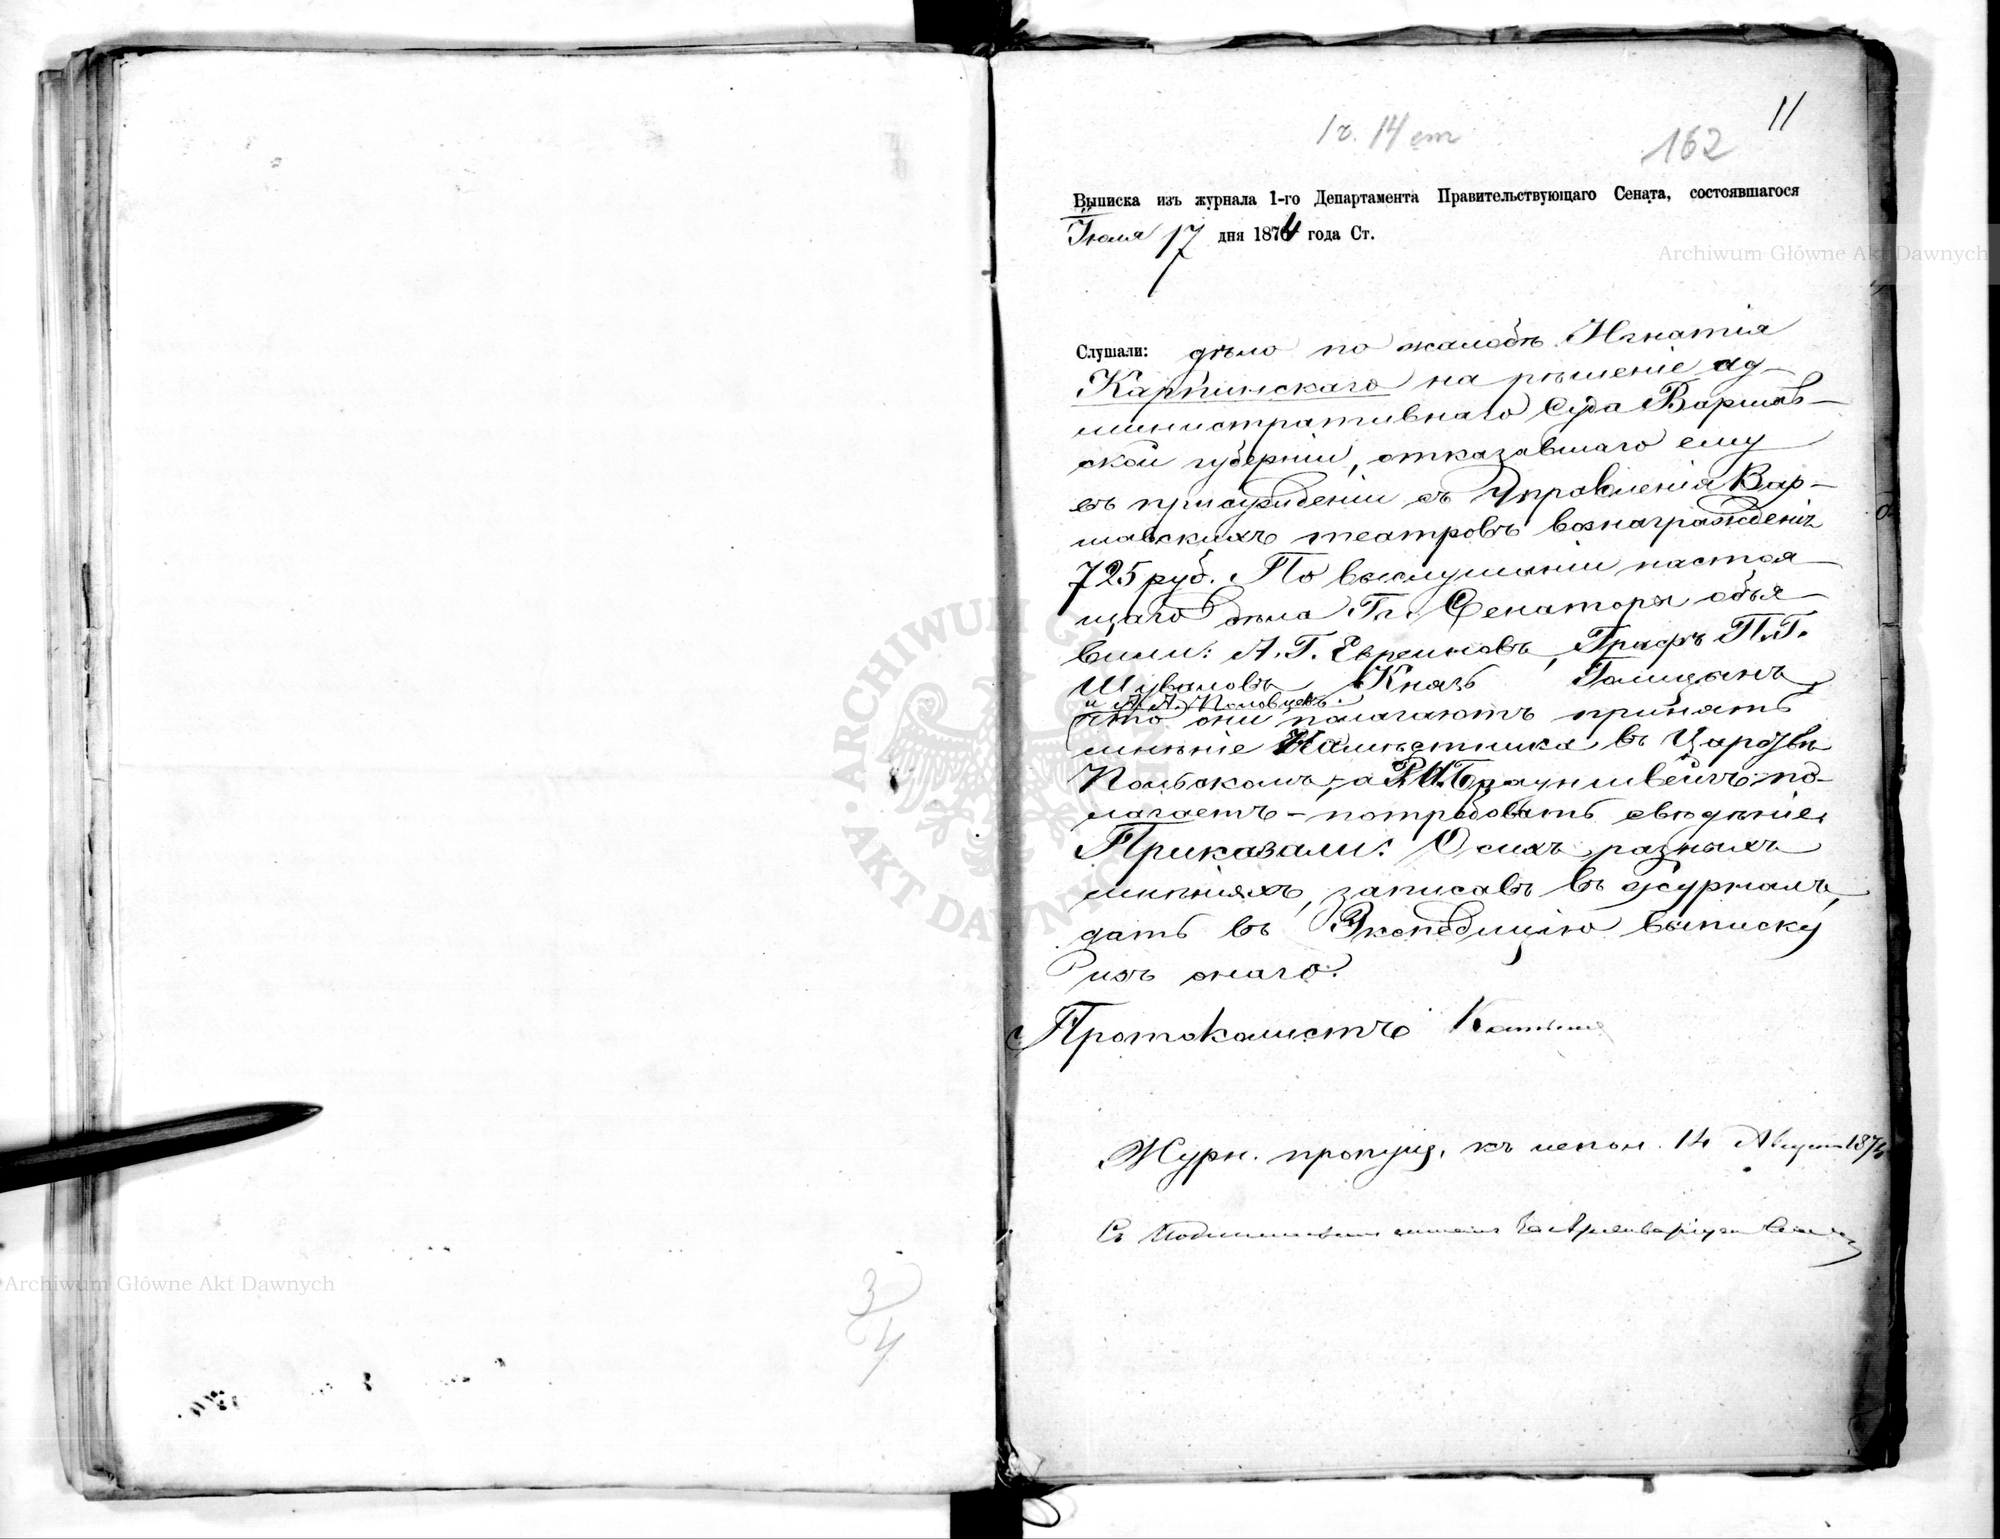 11
1 г. 14 ст
162
Выписка изъ журнала 1-го Департамента Правительствующаго Сената, состоявшагося
Іюля 17 дня 1874 года Ст.
Слушали: дѣло по жалобѣ Игнатія
Карпинскаго на рѣшеніе ад-
министративнаго Суда Варшав-
ской губерніи, отказавшаго ему
въ присужденіи съ Управленія Вар-
шавскихъ театровъ вознагражденія
725 руб. По выслушаніи настоя-
щаго дѣла Гг. Сенаторы объя-
вили: А. Г. Евреиновъ, Графъ П. Г.
Шуваловъ Князь Голицынъ
и А. А. Половцевъ
что они полагаютъ принять
мнѣніе Намѣстника въ Царствѣ
Польскомъ, а Р. И. Брауншвейгъ по-
лагаетъ – потребовать свѣдѣніе.
Приказали: О сихъ разныхъ
мнѣніяхъ, записавъ въ журналъ,
дать въ Экспедицію выписку
изъ онаго.
Протоколистъ
Журн. пропущ. къ испол. 14 Августа 187
Съ
3/4
ARCHIWUM GŁÓWNE AKT DAWNYCH
Archiwum Główne Akt Dawnych
Archiwum Główne Akt Dawnych